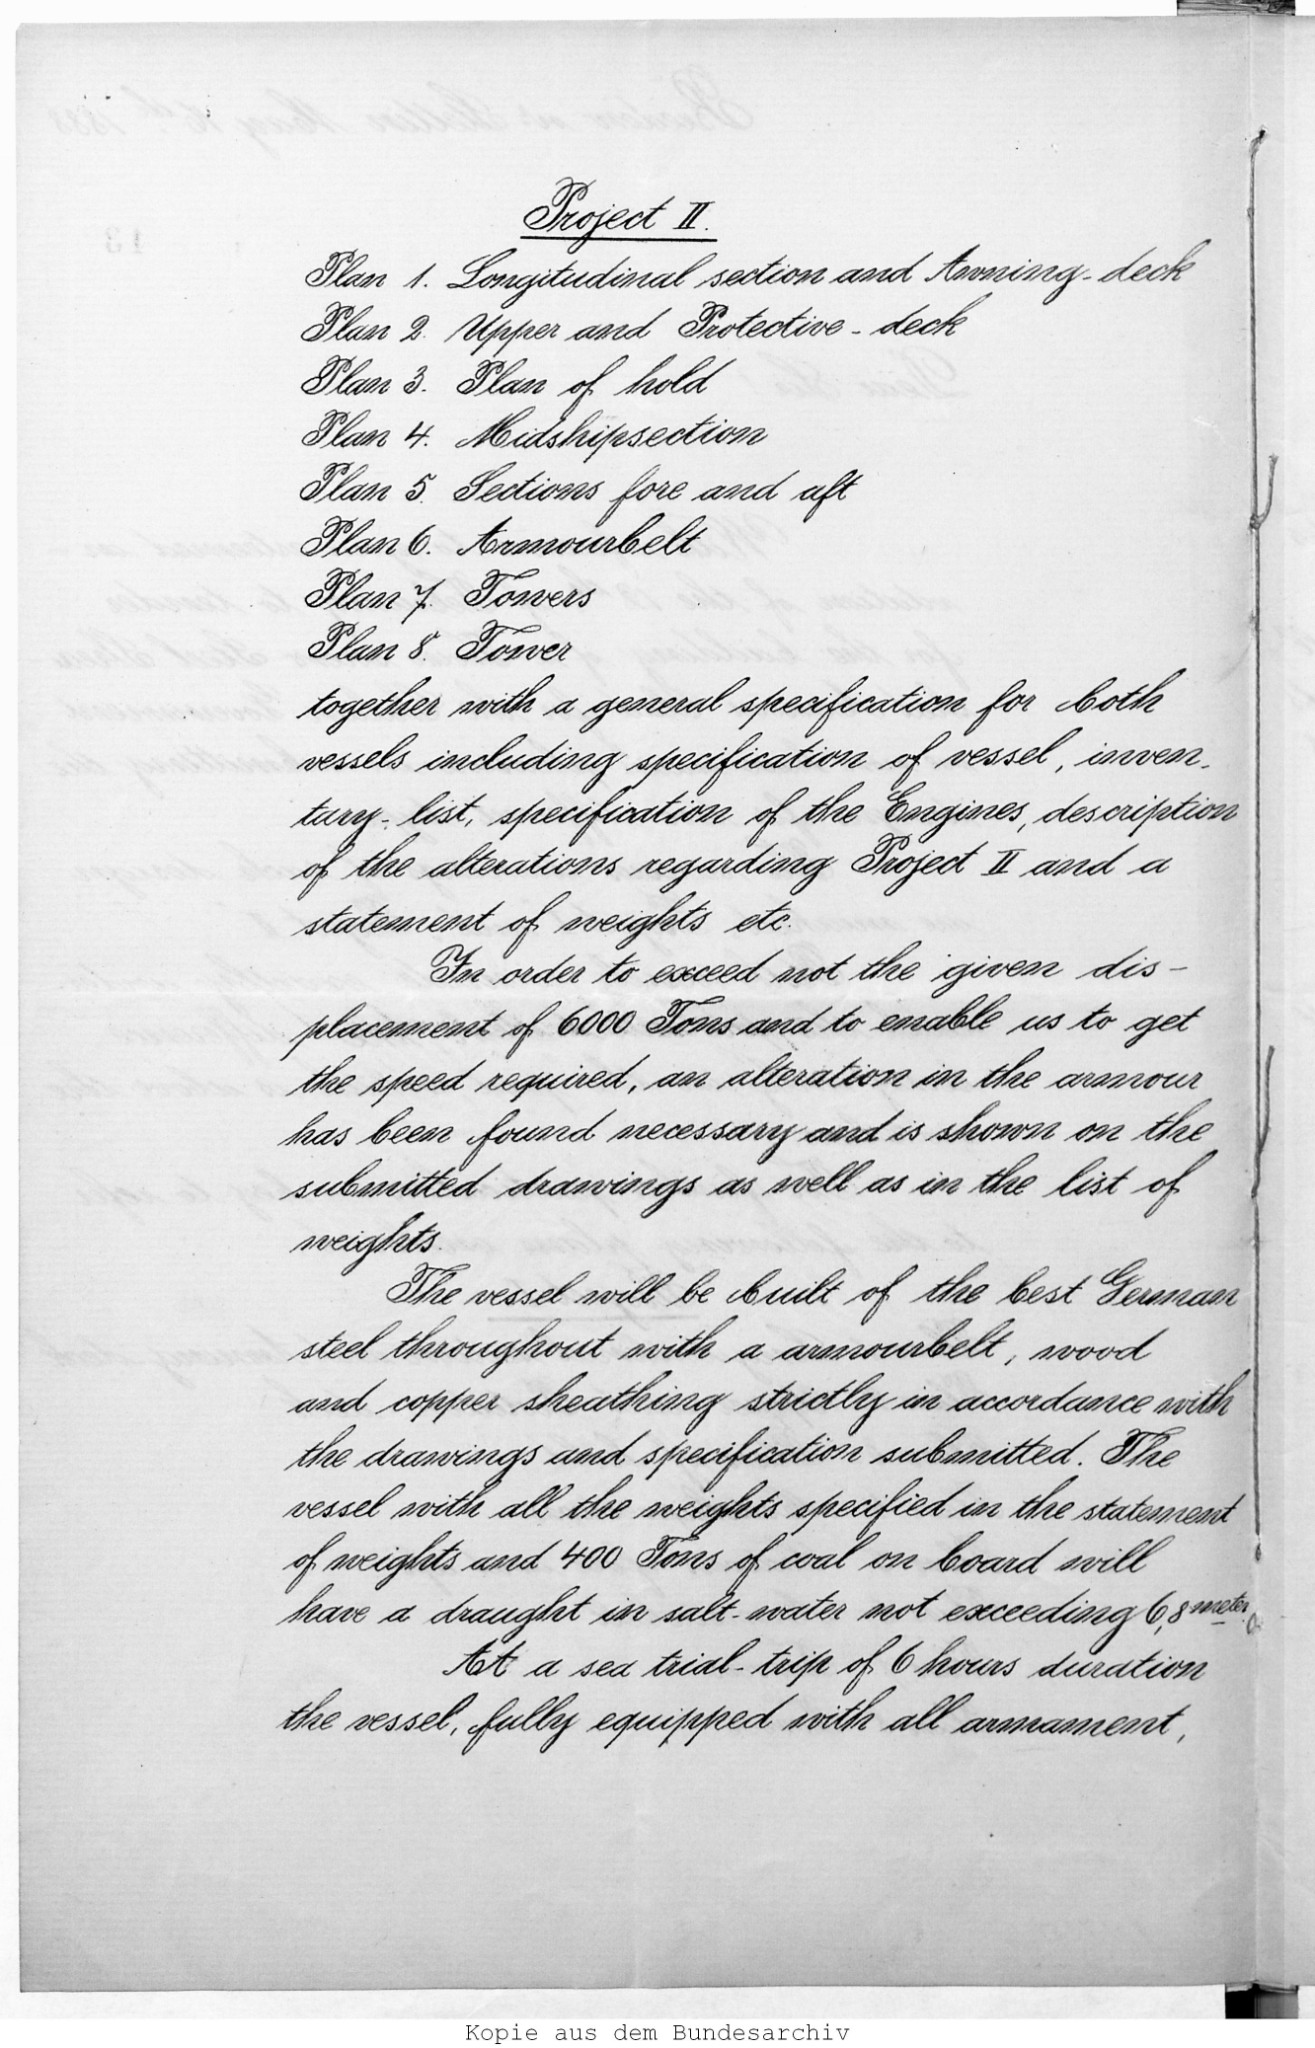 Project II.
Plan 1. Longitudinal section and Awning-deck
Plan 2. Upper and Protective-deck
Plan 3. Plan of hold
Plan 4. Midshipsection
Plan 5. Sections fore and aft
Plan 6. Armourbelt
Plan 7. Towers
Plan 8. Tower
together with a general specification for both
vessels including specification of vessel, inven-
tury-list, specification of the Engines, description
of the alterations regarding Project II and a
statement of weights etc.
In order to exceed not the given dis-
placement of 6000 Tons and to enable us to get
the speed required, an alteration in the armour
has been found necessary and is shown on the
submitted drawings as well as in the list of
weights.
The vessel will be built of the best German
steel throughout with a armourbelt, wood
and copper sheathing strictly in accordance with
the drawings and specification submitted. The
vessel with all the weights specified in the statement
of weights and 400 Tons of coal on board will
have a draught in salt-water not exceeding 6,8 meter.
At a sea trial-trip of 6 hours duration
the vessel, fully equipped with all armament,
Kopie aus dem Bundesarchiv